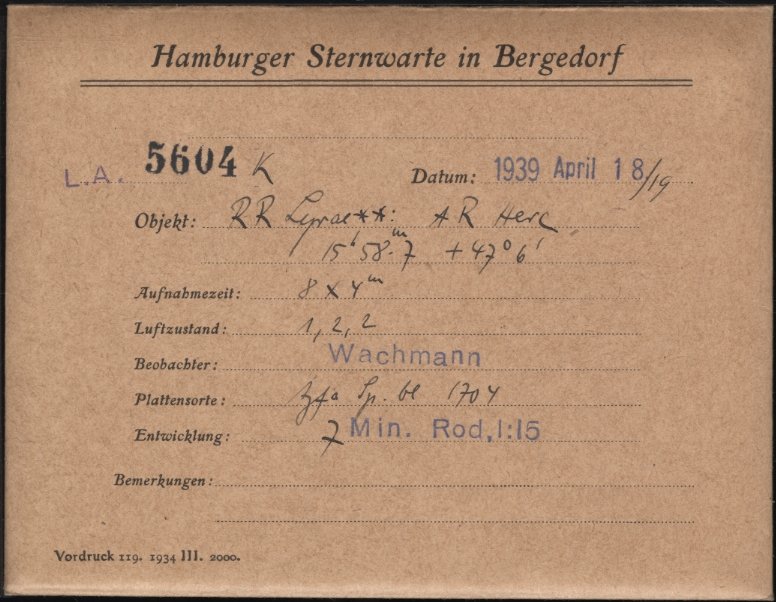 Hamburger Sternwarte in Bergedorf
L.A. 5604 K Datum: 1939 April 18/19
Objekt: RR Lyrae**: AR Herc
15h 58m.7 +47° 6'
Aufnahmezeit: 8 x 4m
Luftzustand: 1, 2, 2
Beobachter: Wachmann
Plattensorte: Sp. bl 1704
Entwicklung: 7 Min. Rod, 1:15
Bemerkungen:
Vordruck 119. 1934 III. 2000.